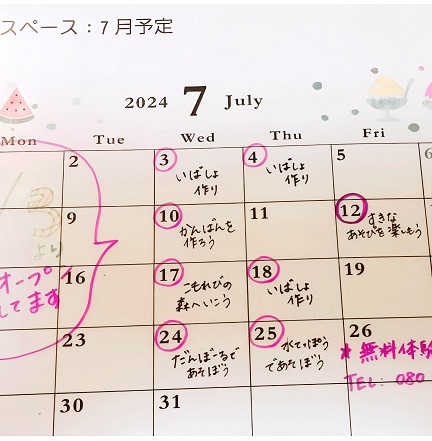 スペース：７月予定
2024 7 July
Mon Tue Wed Thu Fri
2 3 4 5 6
いばしょ
作り
いばしょ
作り
/3
より
9 10 11 12
かんばんを
作ろう
すきな
あそびを楽しもう
オープン
してます
16 17 18 19
こもれびの
森へいこう
いばしょ
作り
23 24 25 26
だんぼーるで
あそぼう
水てっぽう
であそぼう
* 無料体験
TEL: 080
30 31